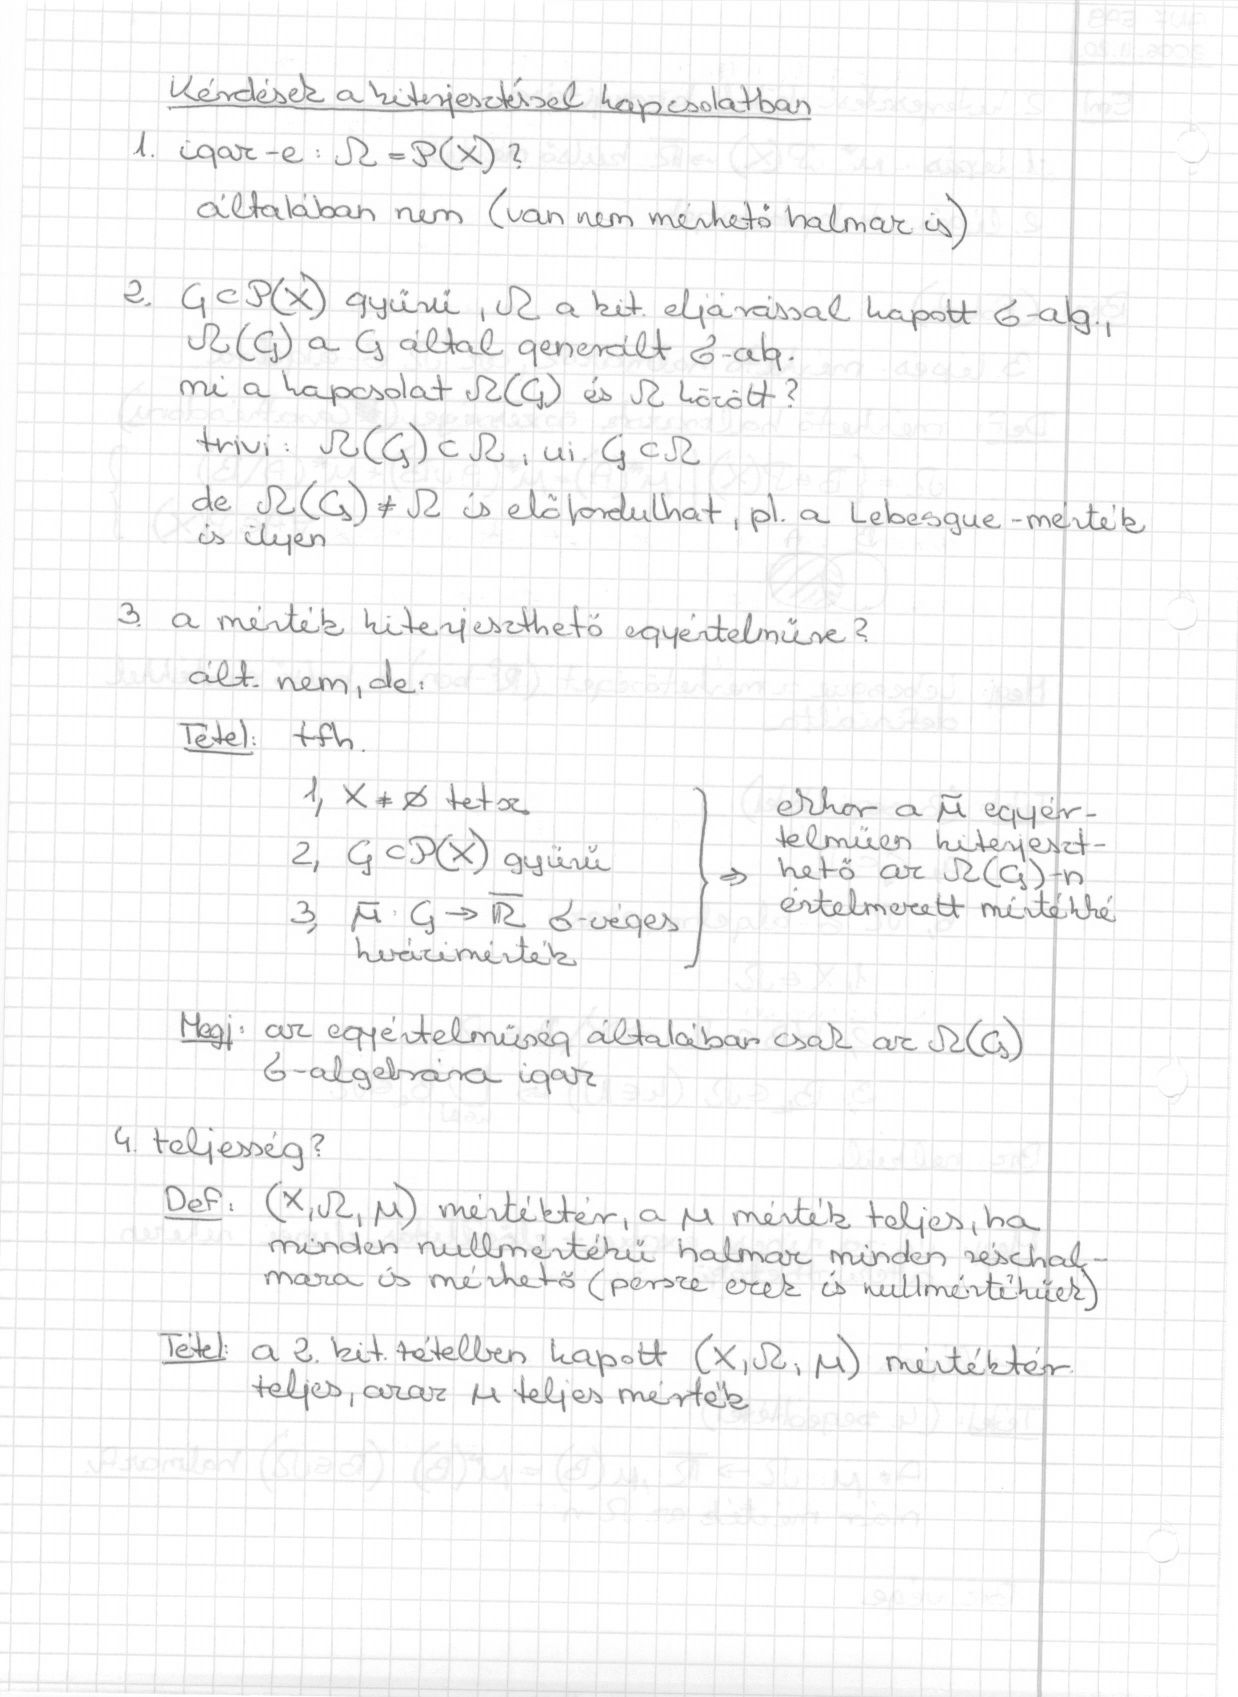 Kérdések a kiterjesztéssel kapcsolatban
1. igaz-e: Ω = P(X)?
általában nem (van nem mérhető halmaz is)
2. G ⊂ P(X) gyűrű, Ω a kit. eljárással kapott σ-alg.,
Ω(G) a G által generált σ-alg.
mi a kapcsolat Ω(G) és Ω között?
trivi: Ω(G) ⊂ Ω, ui. G ⊂ Ω
de Ω(G) ≠ Ω is előfordulhat, pl. a Lebesgue-mérték
is ilyen
3. a mérték kiterjeszthető egyértelműre?
ált. nem, de:
Tétel: tfh.
1, X ≠ ∅ tetsz
2, G ⊂ P(X) gyűrű
3, μ̃: G → ℝ̅ σ-véges
kvázimérték
⇒ ekkor a μ̃ egyér-
telműen kiterjeszt-
hető az Ω(G)-n
értelmezett mértékké
Megj: az egyértelműség általában csak az Ω(G)
σ-algebrára igaz
4. teljesség?
Def: (X, Ω, μ) mértéktér, a μ mérték teljes, ha
minden nullmértékű halmaz minden részhal-
maza is mérhető (persze ezek is nullmértékűek)
Tétel: a 2. kit. tételben kapott (X, Ω, μ) mértéktér
teljes, azaz μ teljes mérték